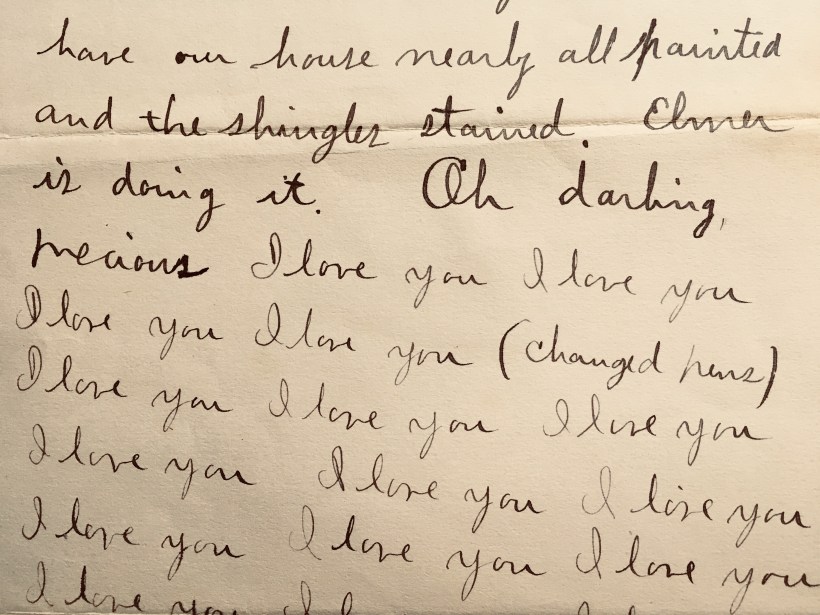 have our house nearly all painted
and the shingles stained. Elmer
is doing it. Oh darling,
precious I love you I love you
I love you I love you (changed pens)
I love you I love you I love you
I love you I love you I love you
I love you I love you I love you
I love you I l